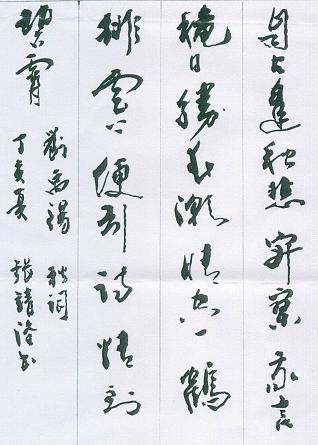 自古逢秋悲寂寥我言
穐日勝春潮晴空一鶴
排雲上便引詩情到
碧霄
劉禹錫 秋詞
丁亥夏 張靖